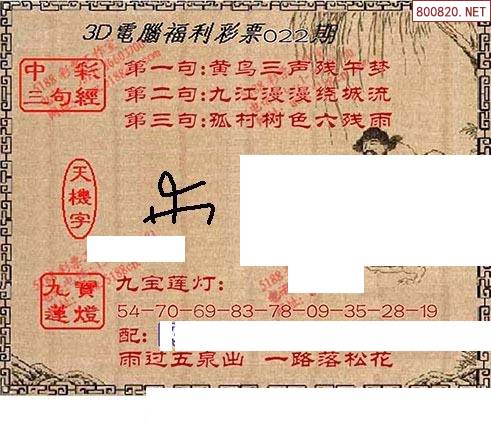 800820.NET
3D電腦福利彩票022期
中彩
三句經
第一句:黄鸟三声残午梦
第二句:九江漫漫绕城流
第三句:孤村树色六残雨
天機字
九寶
蓮燈
九宝莲灯:
54-70-69-83-78-09-35-28-19
配:
雨过五泉出 一路落松花